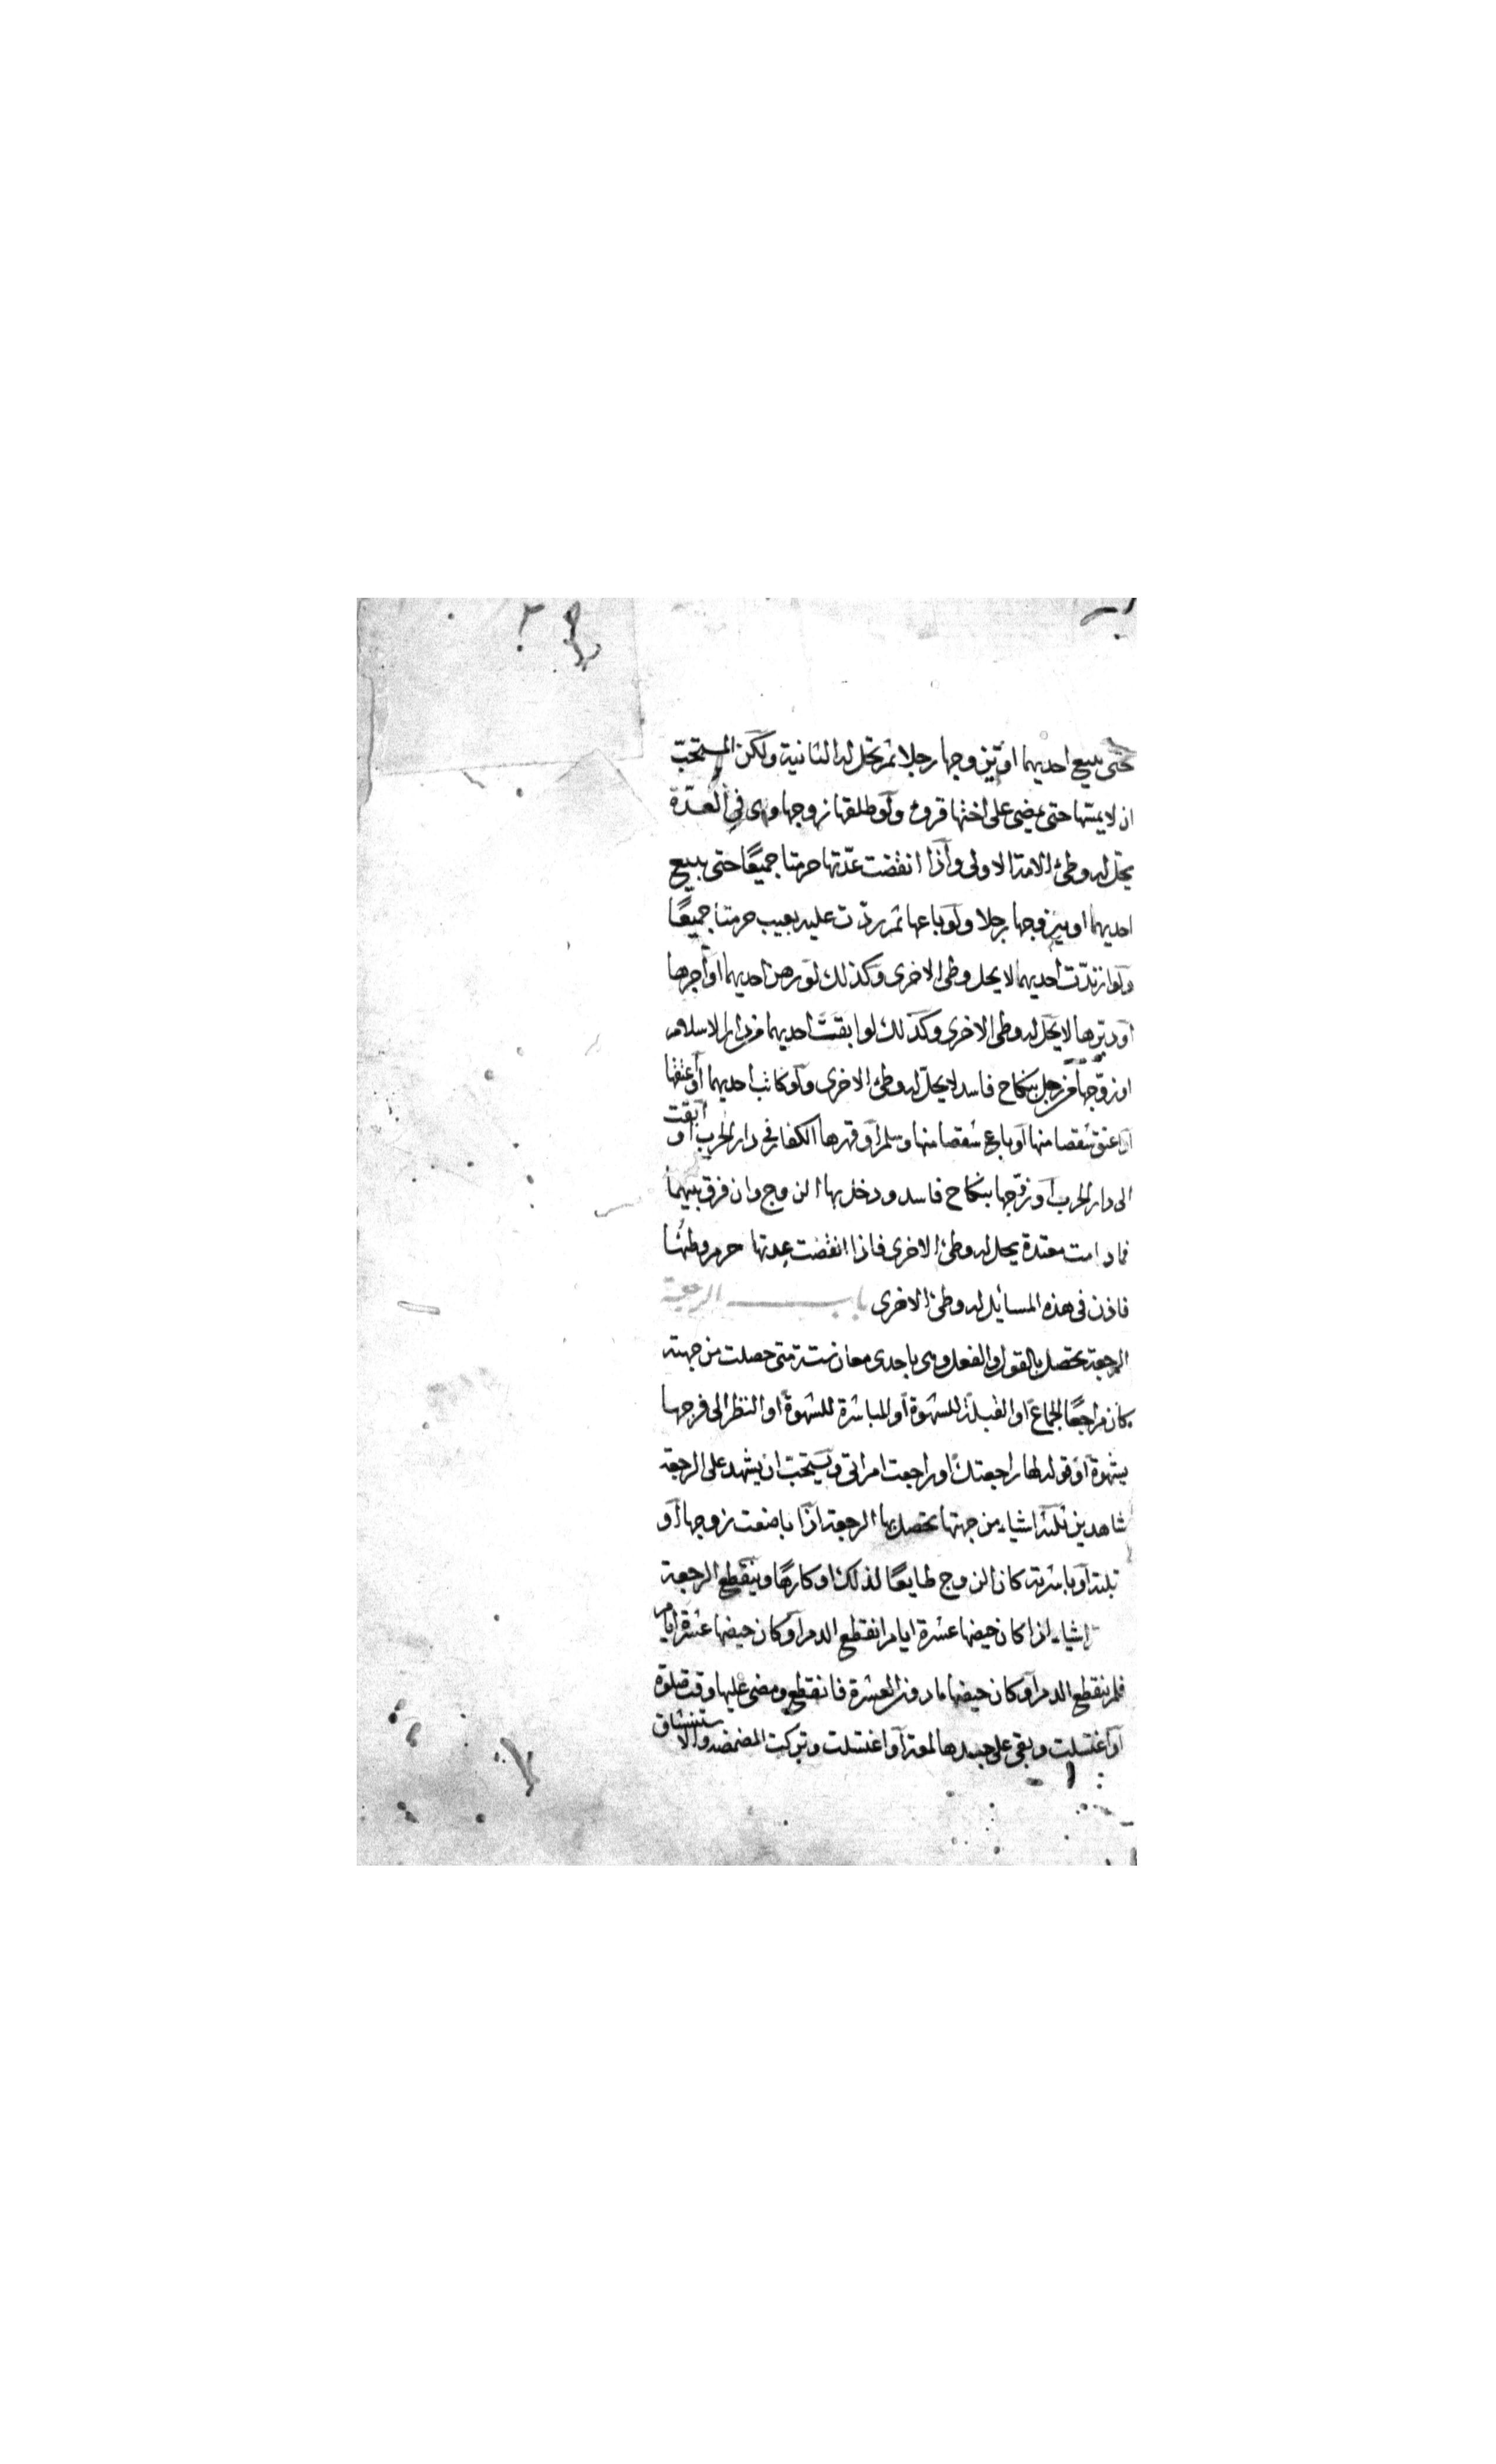 حتى يبيع احديهما او يزوجها رجلا ثم تحل له الثانية ولكن المستحبّ
ان لا يمسّها حتى يمضي على اختها قروء ولو طلقها زوجها وهى في العدّة
يحلّ له وطئ الامة الاولى واذا انقضت عدّتها حرمتا جميعًا حتى يبيع
احديهما او يزوجها رجلا ولو باعها ثم ردّت عليه بعيب حرمتا جميعًا
ولو ارتدّت احديهما لا يحل وطئ الاخرى وكذلك لو رهن احديهما او آجرها
او دبّرها لا يحلّ له وطئ الاخرى وكذلك لو ابقت احديهما في دار الاسلام
او زوّجها من رجل بنكاح فاسد لا يحلّ له وطئ الاخرى ولو كاتب احديهما او اعتقها
او اعتق شقصا منها او باع شقصا منها وسلم او قهرها الكفار في دار الحرب او ابقت
الى دار الحرب او زوّجها بنكاح فاسد ودخل بها الزوج وان فرق بينهما
فما دامت معتدة يحل له وطئ الاخرى فاذا انقضت عدتها حرم وطئها
فاذن فى هذه المسائل له وطئ الاخرى باب الرجعة
الرجعة تحصل بالقول والفعل وهى باحدى معان ستة متى حصلت من جهته
كان مراجعًا الجماع او القبلة للشهوة او المباشرة للشهوة او النظر الى فرجها
بشهوة او قوله لها راجعتك او راجعت امراتي ويستحبّ ان يشهد على الرجعة
شاهدين ثلثة اشياء من جهتها تحصل بها الرجعة اذا باضعت زوجها او
قبلته او باشرته كان الزوج طايعًا لذلك او كارهًا وينقطع الرجعة
اشياء اذا كان حيضها عشرة ايام انقطع الدم او كان حيضها عشرة ايام
فلم ينقطع الدم او كان حيضها ما دون العشرة فانقطع ومضى عليها وقت صلوة
او اغتسلت وبقى على جسدها لمعة او اغتسلت وتركت المضمضة والاستنشاق